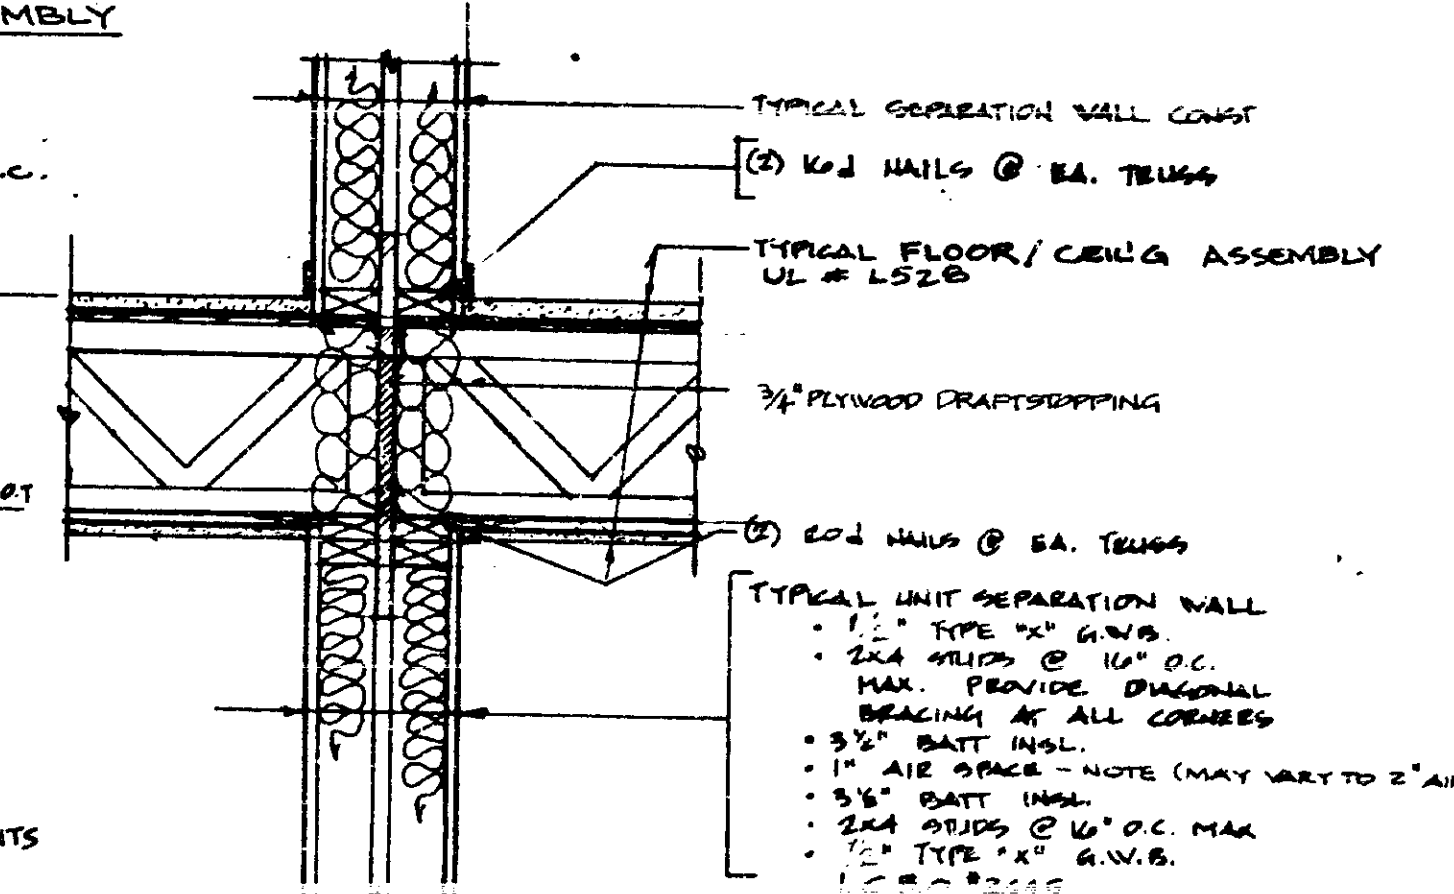 MBLY
.C.
TYPICAL SEPARATION WALL CONST
(2) 16d NAILS @ EA. TRUSS
TYPICAL FLOOR/CEIL'G ASSEMBLY
UL # L528
3/4" PLYWOOD DRAFTSTOPPING
(2) 20d NAILS @ EA. TRUSS
TYPICAL UNIT SEPARATION WALL
• 1/2" TYPE "X" G.W.B.
• 2X4 STUDS @ 16" O.C.
MAX. PROVIDE DIAGONAL
BRACING AT ALL CORNERS
• 3 1/2" BATT INSL.
• 1" AIR SPACE - NOTE (MAY VARY TO 2" AI
• 3 1/2" BATT INSL.
• 2X4 STUDS @ 16" O.C. MAX
• 1/2" TYPE "X" G.W.B.
ITS